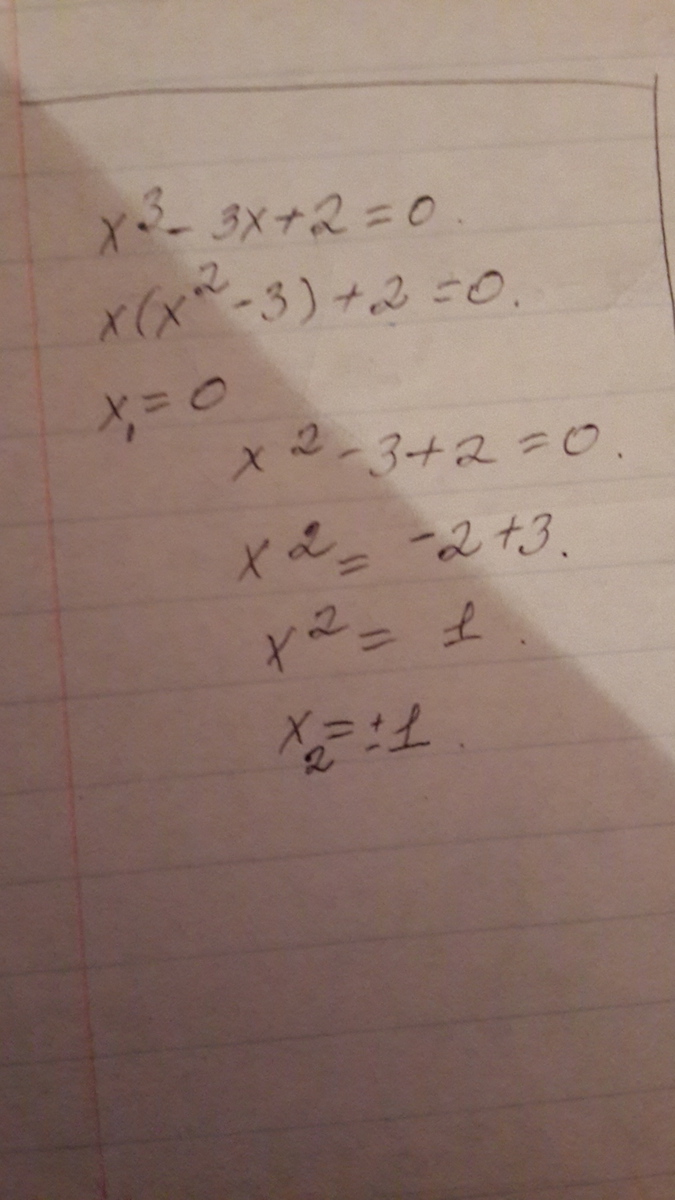 x³ - 3x + 2 = 0.
x(x² - 3) + 2 = 0.
x₁ = 0
x² - 3 + 2 = 0.
x² = -2 + 3.
x² = 1.
x₂ = ±1.